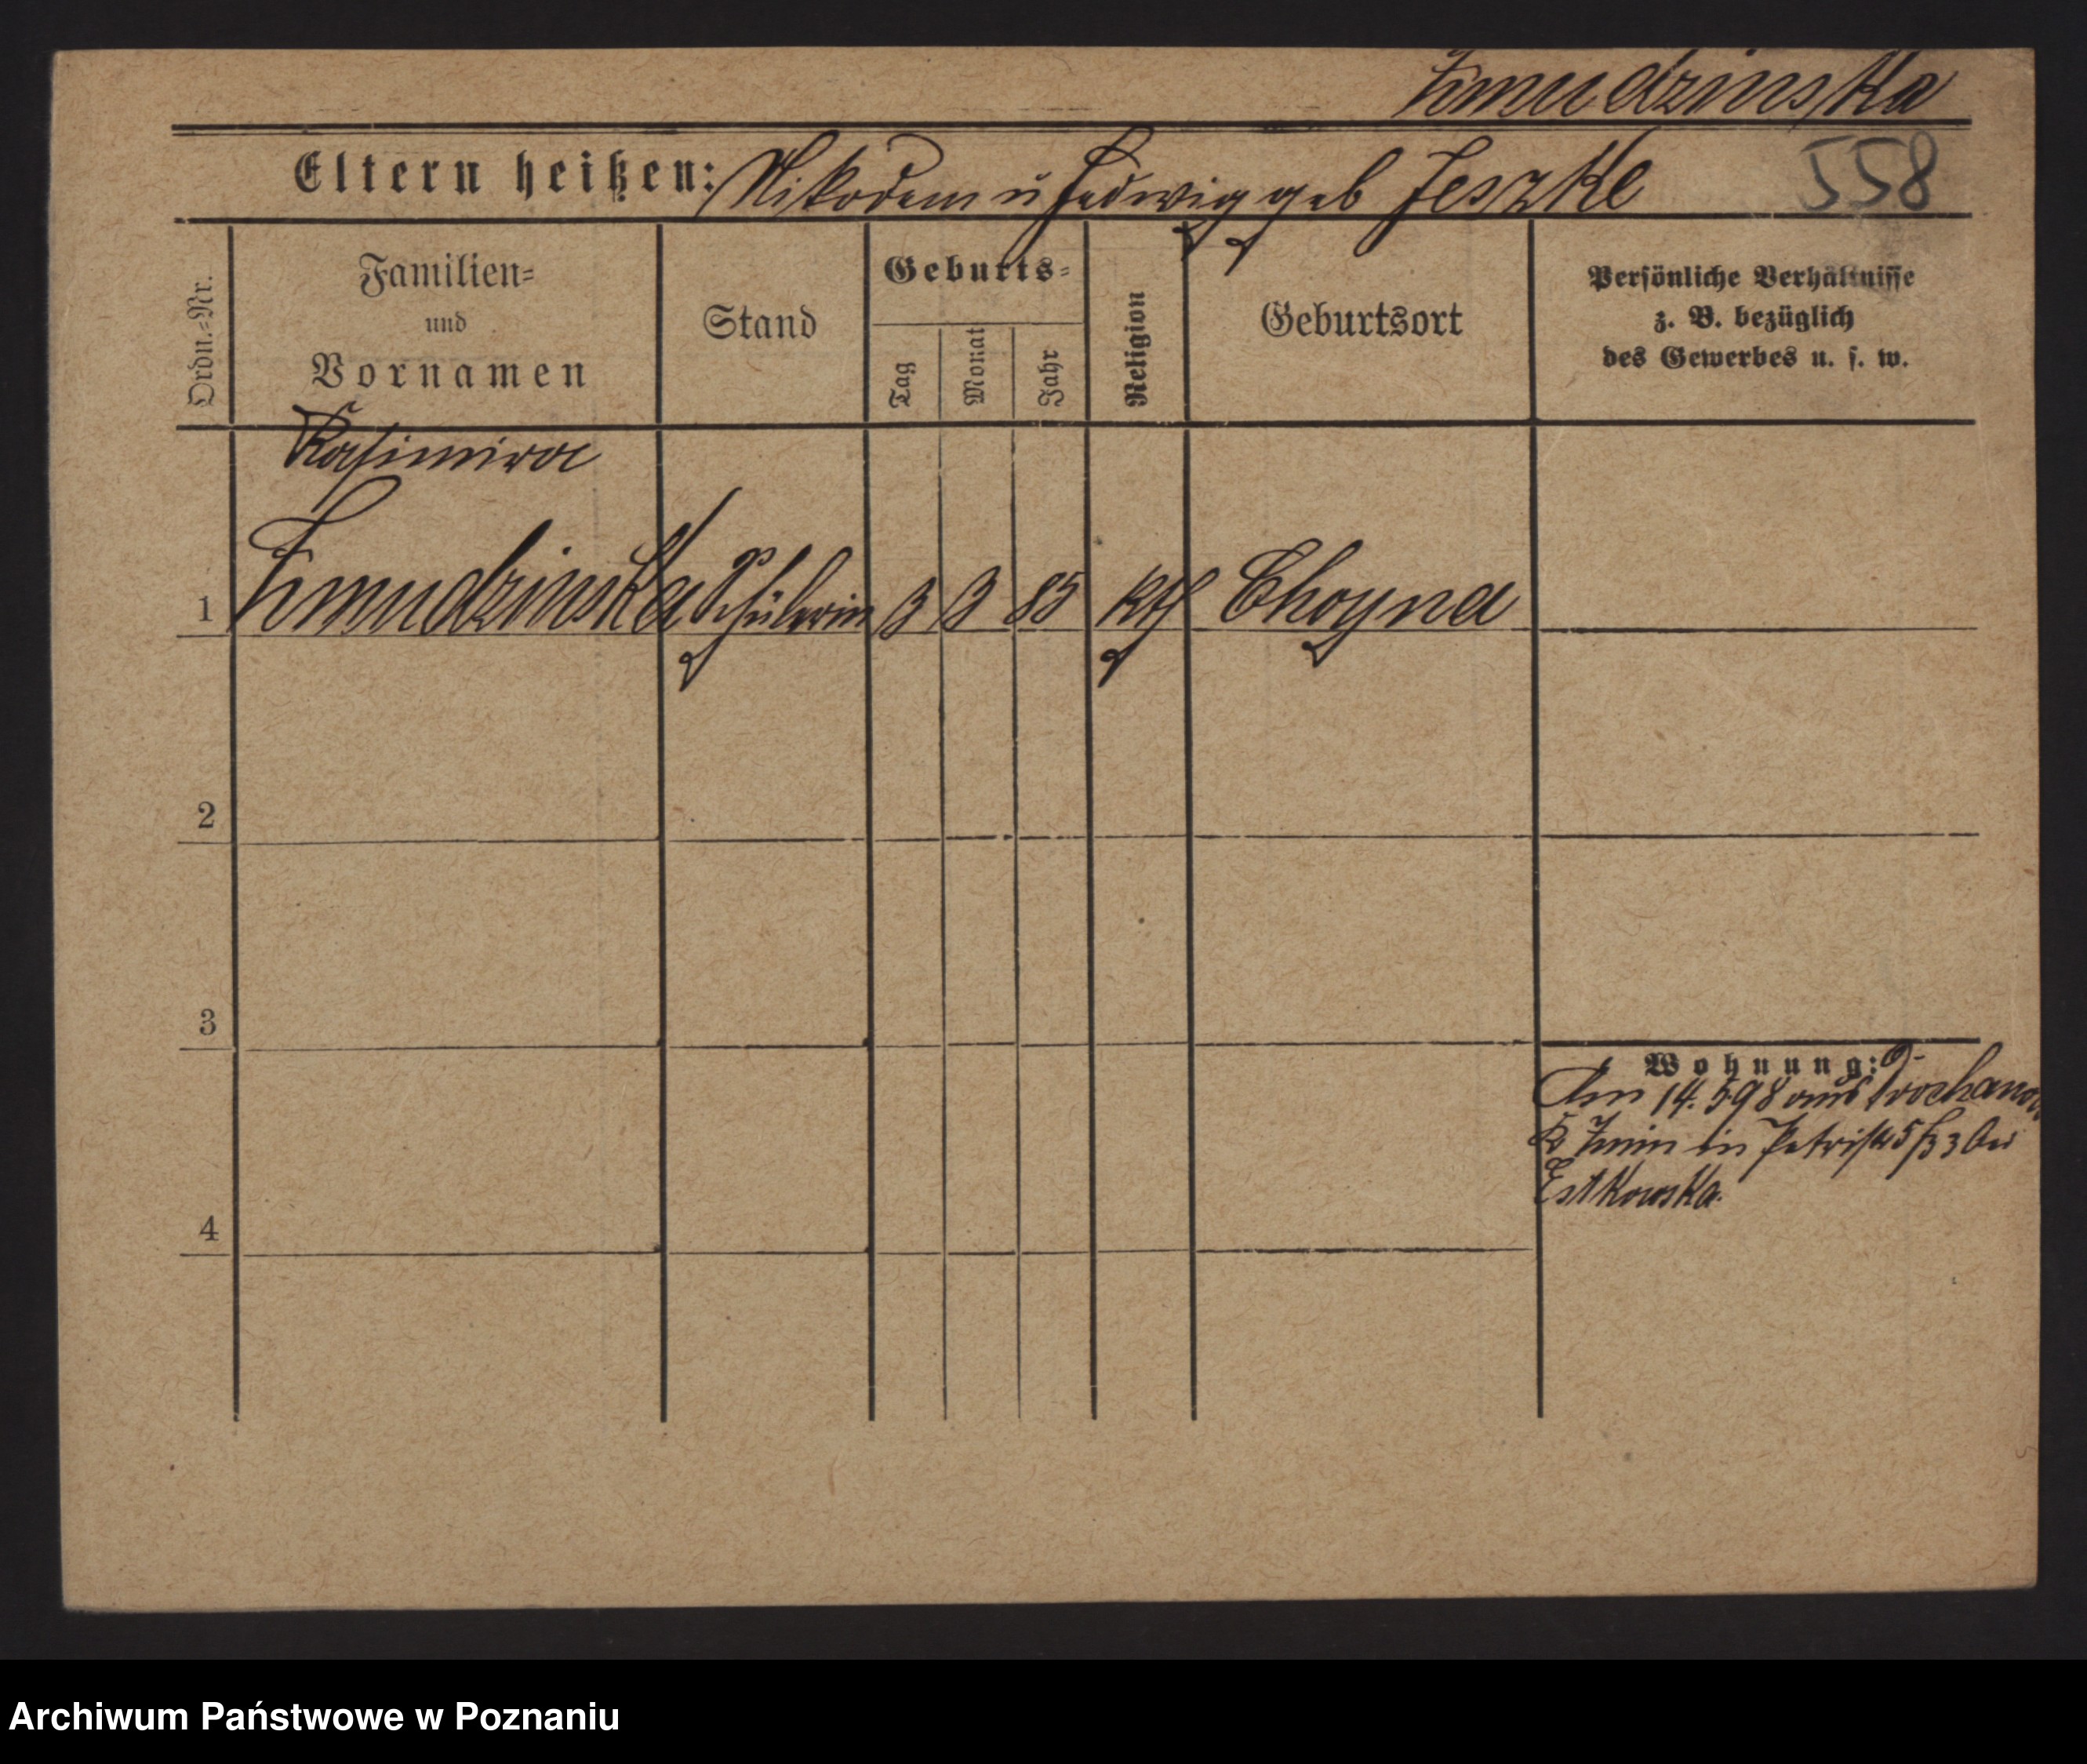 Zmudzinska
Eltern heißen: Nikodem u Hedwig geb Jeszke 558
Ordn.-Nr.
Familien-
und
Vornamen
Stand
Geburts-
Tag
Monat
Jahr
Religion
Geburtsort
Persönliche Verhältnisse
z. B. bezüglich
des Gewerbes u. s. w.
Kasimira
1 Zmudzinska Schülerin 3 3 85 kth Choyna
2
3
4
Wohnung:
Am 14.5 98 aus
Kr Znin in Petristr 5 bei
Estkowska.
Archiwum Państwowe w Poznaniu